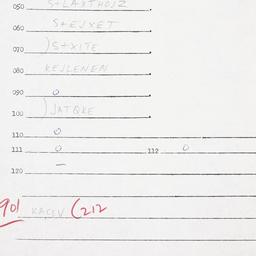 050 S+LAXTHOJZ
060 S+EJXET
070 )S+XITE
080 KEJLENEN
090 0
100 )JATQKE
110 0
111 0 112 0
120 —
901 KACEV (212